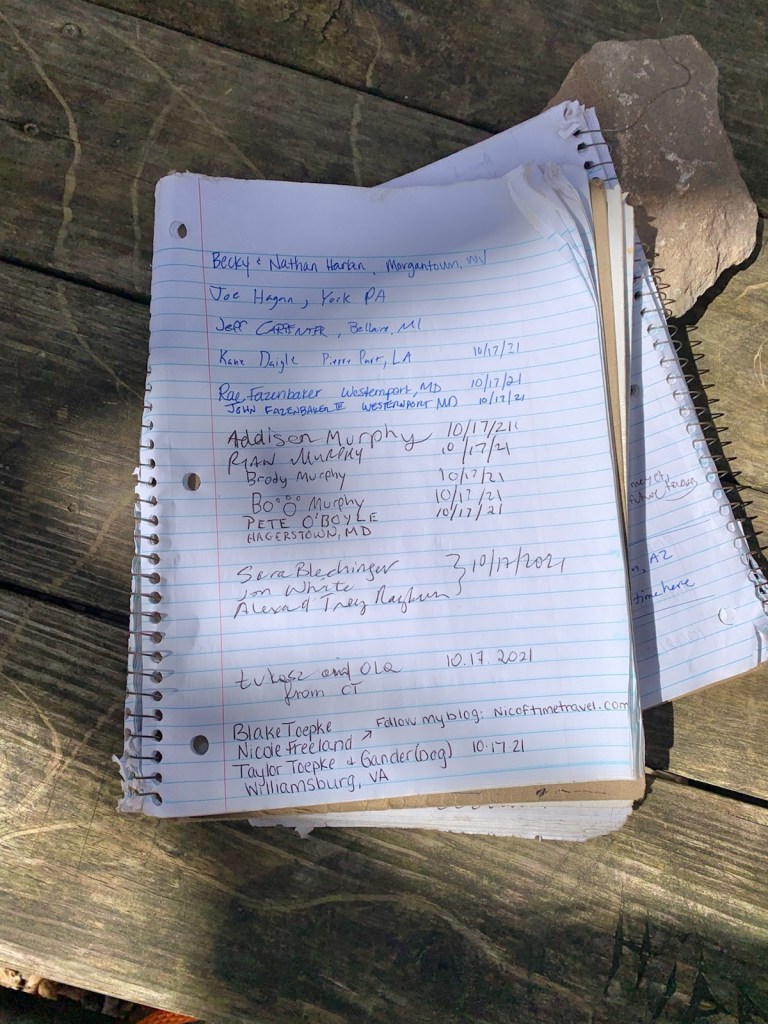 Becky & Nathan Harlan, Morgantown, WV
Joe Hagan, York PA
Jeff CARPENTER, Bellaire, MI
Kane Daigle Pierre Part, LA 10/17/21
Rae Fazenbaker Westernport, MD 10/17/21
JOHN FAZENBAKER III WESTERNPORT MD 10/17/21
Addison Murphy 10/17/21
RYAN MURPHY 10/17/21
Brody Murphy 10/17/21
Murphy 10/17/21
PETE O'BOYLE 10/17/21
HAGERSTOWN, MD
Sara Blechinger
Jon White } 10/17/2021
Alex and Trey
Łukasz and Ola 10.17.2021
from CT
Blake Toepke
Nicole Freeland ↗ Follow my blog: Nicoftimetravel.com
Taylor Toepke + Gander (Dog) 10.17.21
Williamsburg, VA
future
, AZ
time here